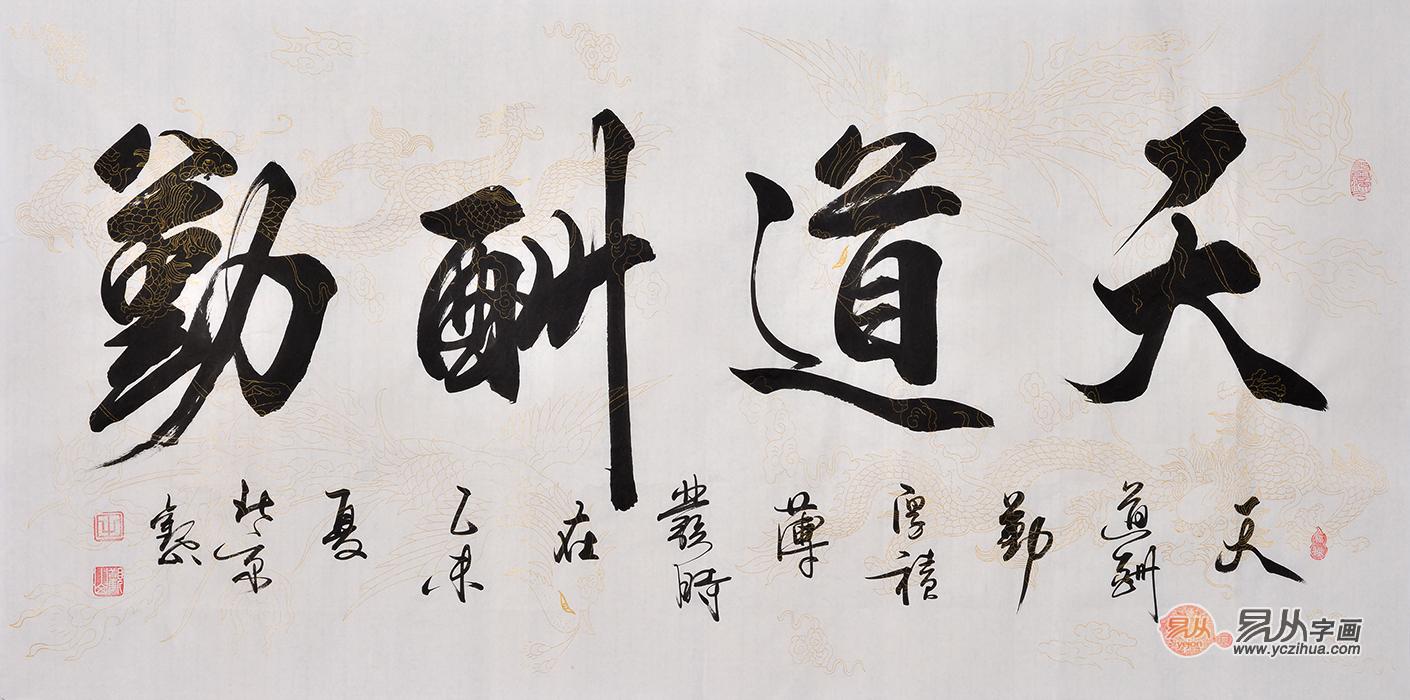 天道酬勤
天道酬勤厚積薄發時在乙未夏北京
易从
易从字画
www.yczihua.com